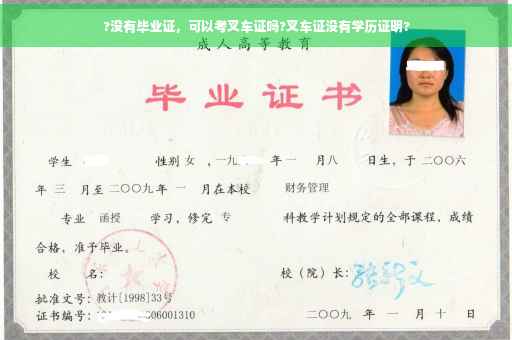 ?没有毕业证，可以考叉车证吗?叉车证没有学历证明?
成人高等教育
毕业证书
学生 性别 女 ，一九 年一 月八 日生，于二〇〇六
年 三 月至二〇〇九年 一 月在本校 财务管理
专业 函授 学习，修完 专 科教学计划规定的全部课程，成绩
合格，准予毕业。
校 名： 校（院）长：
批准文号：教计[1998]33号
证书编号： 06001310 二〇〇九 年 一 月 十 日